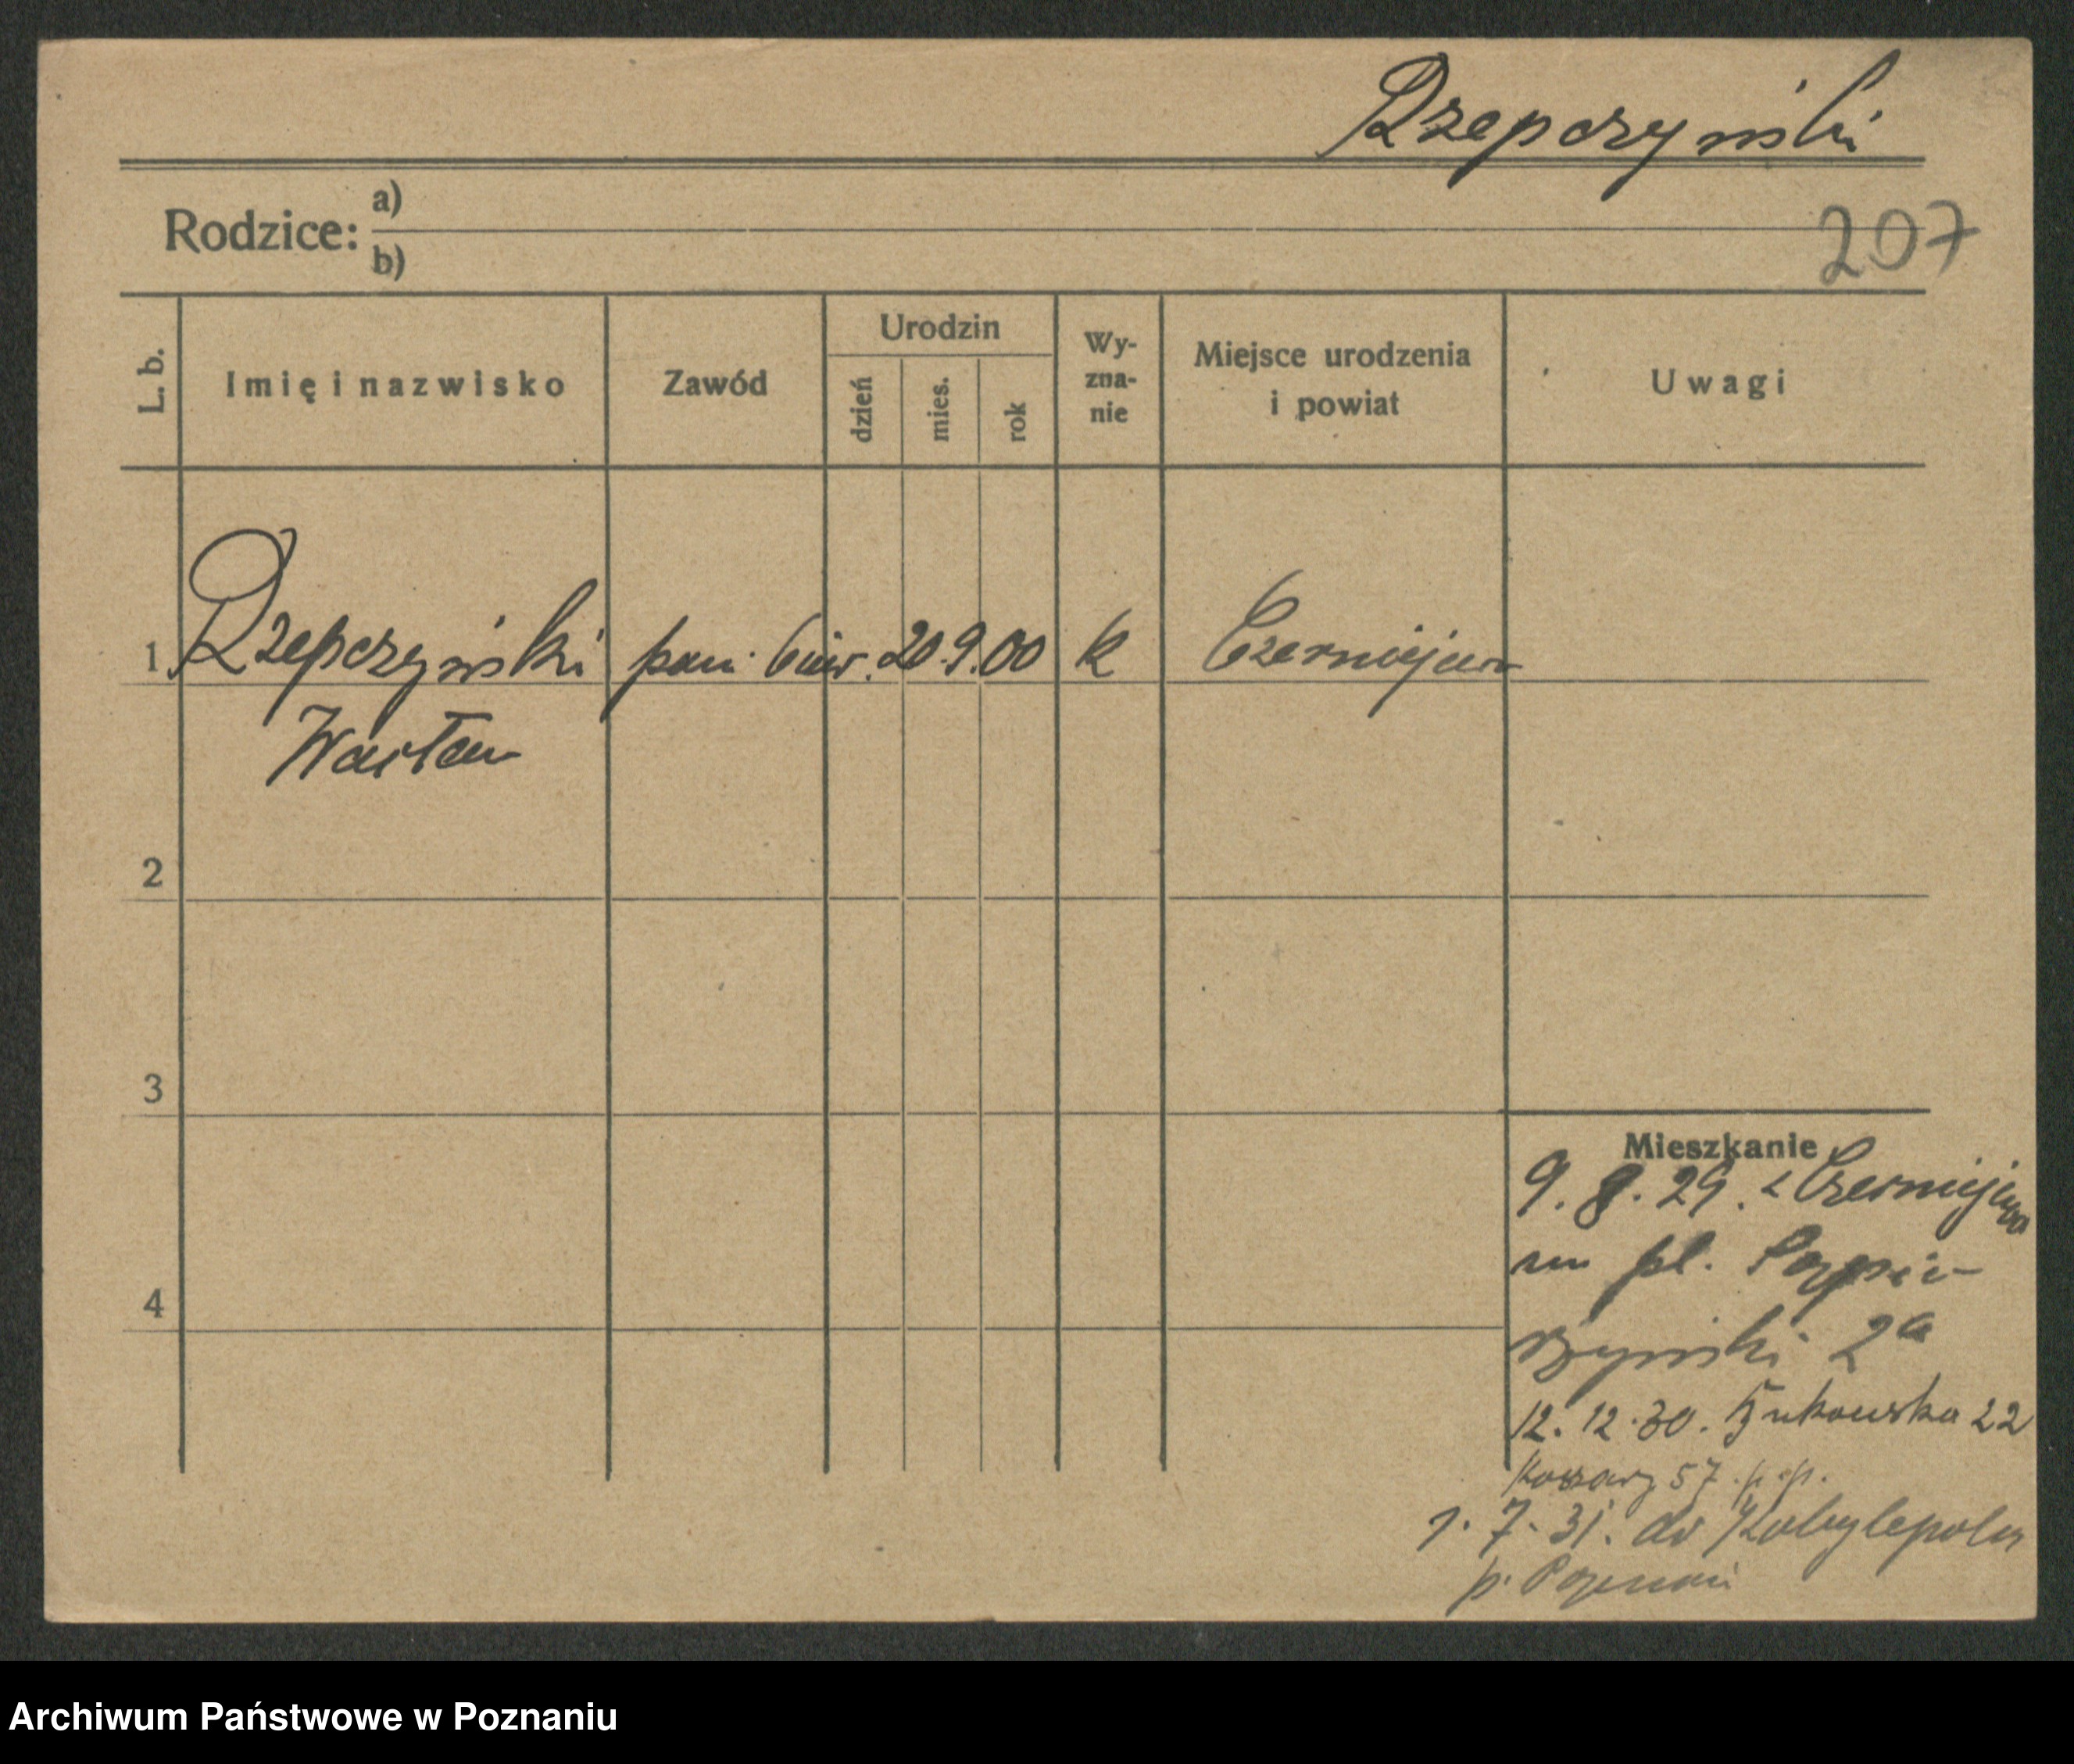 Rzepczyński
Rodzice: a)
b)
207
L. b.
Imię i nazwisko
Zawód
Urodzin
dzień
mies.
rok
Wy-
zna-
nie
Miejsce urodzenia
i powiat
Uwagi
1 Rzepczyński 20.9.00 k Czerniejewo
Wacław
2
3
4
Mieszkanie
9. 8. 29. z Czerniejewa
pl.
2a
12. 12. 30. Bukowska 22
Koszary 57. p. p.
7. 31. do Kobylepole
p. Poznań
Archiwum Państwowe w Poznaniu